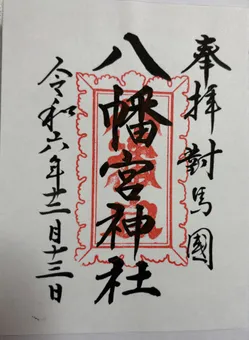 奉拝 對馬國
八幡宮神社
令和六年十二月十三日